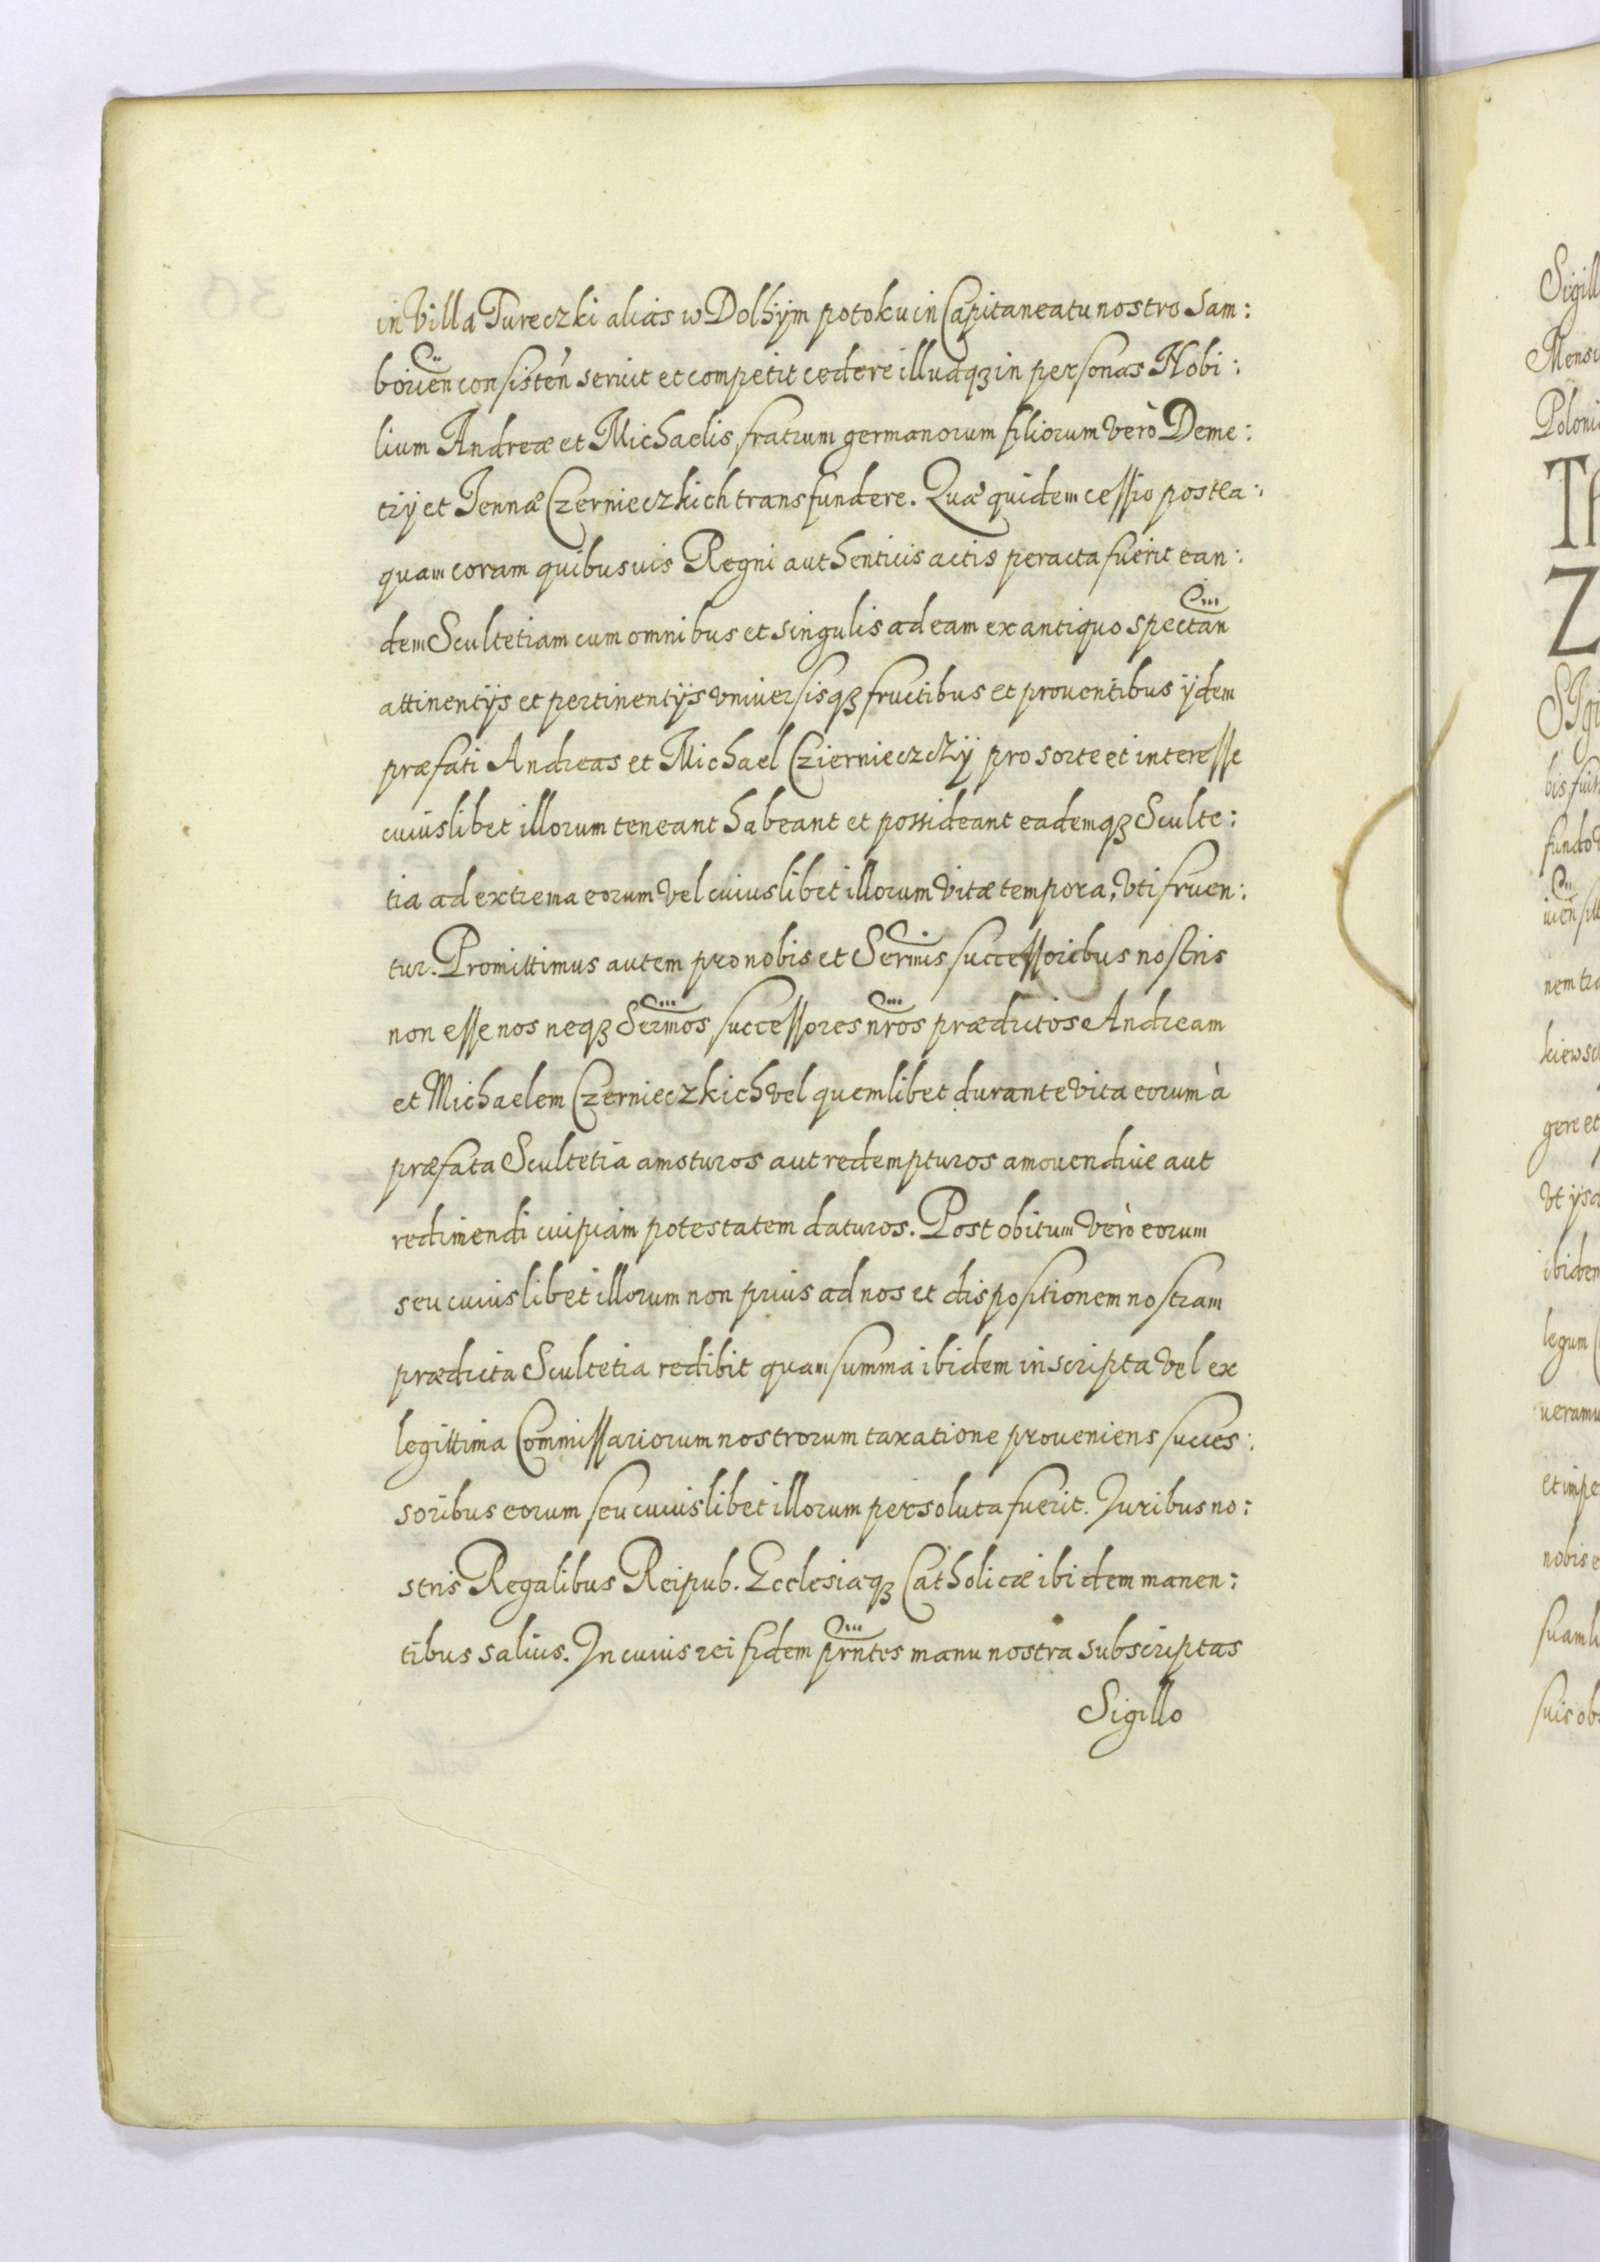 in Villa Tureczki alias w Dolhÿm potoku in Capitaneatu nostro Sam:
boriuen consisten̄ seruit et competit cedere illudq3 in personas Nobi:
lium Andreæ et Michaelis fratrum germanorum filiorum verò Deme:
trÿ et Jennæ Czernieczkich transfundere. Quæ quidem cessio postea:
quam coram quibusuis Regni authenticis actis peracta fuerit ean:
dem Scultetiam cum omnibus et singulis ad eam ex antiquo spectan̄
attinentÿs et pertinentÿs vniuersisq3 fructibus et prouentibus ÿdem
præfati Andreas et Michael Cziernieczcżÿ pro sorte et interesse
cuiuslibet illorum teneant habeant et possideant eademq3 Sculte:
tia ad extrema eorum vel cuiuslibet illorum vitæ tempora, vti fruen:
tur. Promittimus autem pro nobis et Sermis successoribus nostris
non esse nos neq3 Sermos successores nros prædictos Andream
et Michaelem Czernieczkich vel quemlibet durante vita eorum à
præfata Scultetia amoturos aut redempturos amouendiue aut
redimendi cuipiam potestatem daturos. Post obitum verò eorum
seu cuiuslibet illorum non prius ad nos et dispositionem nostram
prædicta Scultetia redibit quam summa ibidem inscripta vel ex
legittima Commissariorum nostrorum taxatione proueniens succes:
soribus eorum seu cuiuslibet illorum persoluta fuerit. Juribus no:
stris Regalibus Reipub. Ecclesiæq3 Catholicæ ibidem manen:
tibus saluis. In cuius rei fidem prntes manu nostra subscriptas
Sigillo